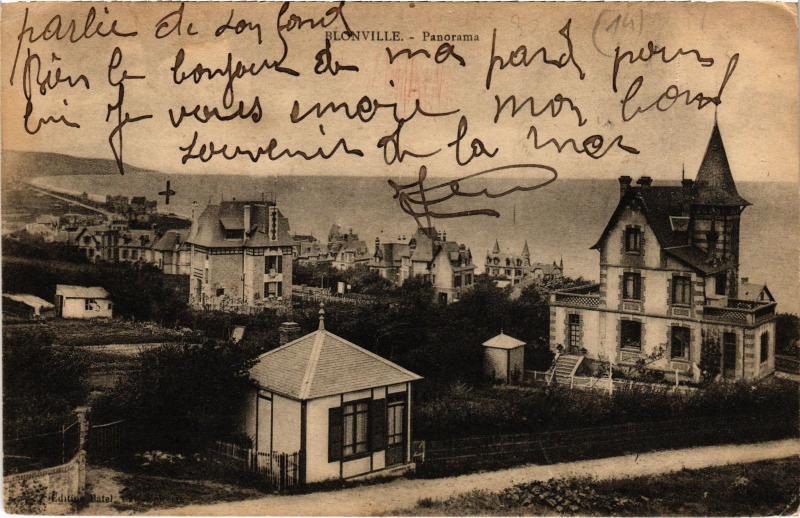 parlie de son fond
BLONVILLE. - Panorama
(14)
Bien le bonjour de ma pard pour
lui Je vous envoie mon bon
souvenir de la mer
Édition Batel,